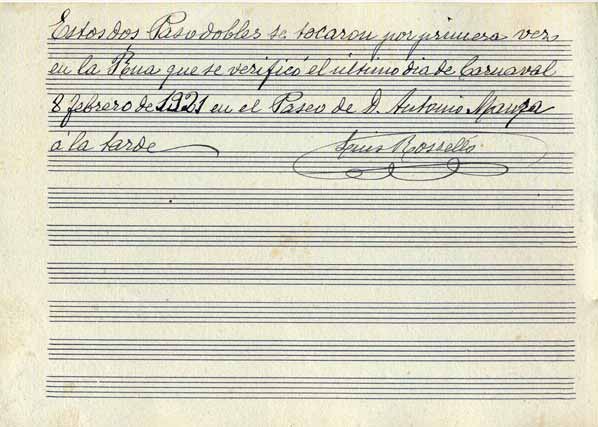 Estos dos Pasodobles se tocaron por primera vez
en la Rua que se verificó el ultimo dia de Carnaval
8 febrero de 1921 en el Paseo de D. Antonio Maura
á la tarde
Luis Rosselló